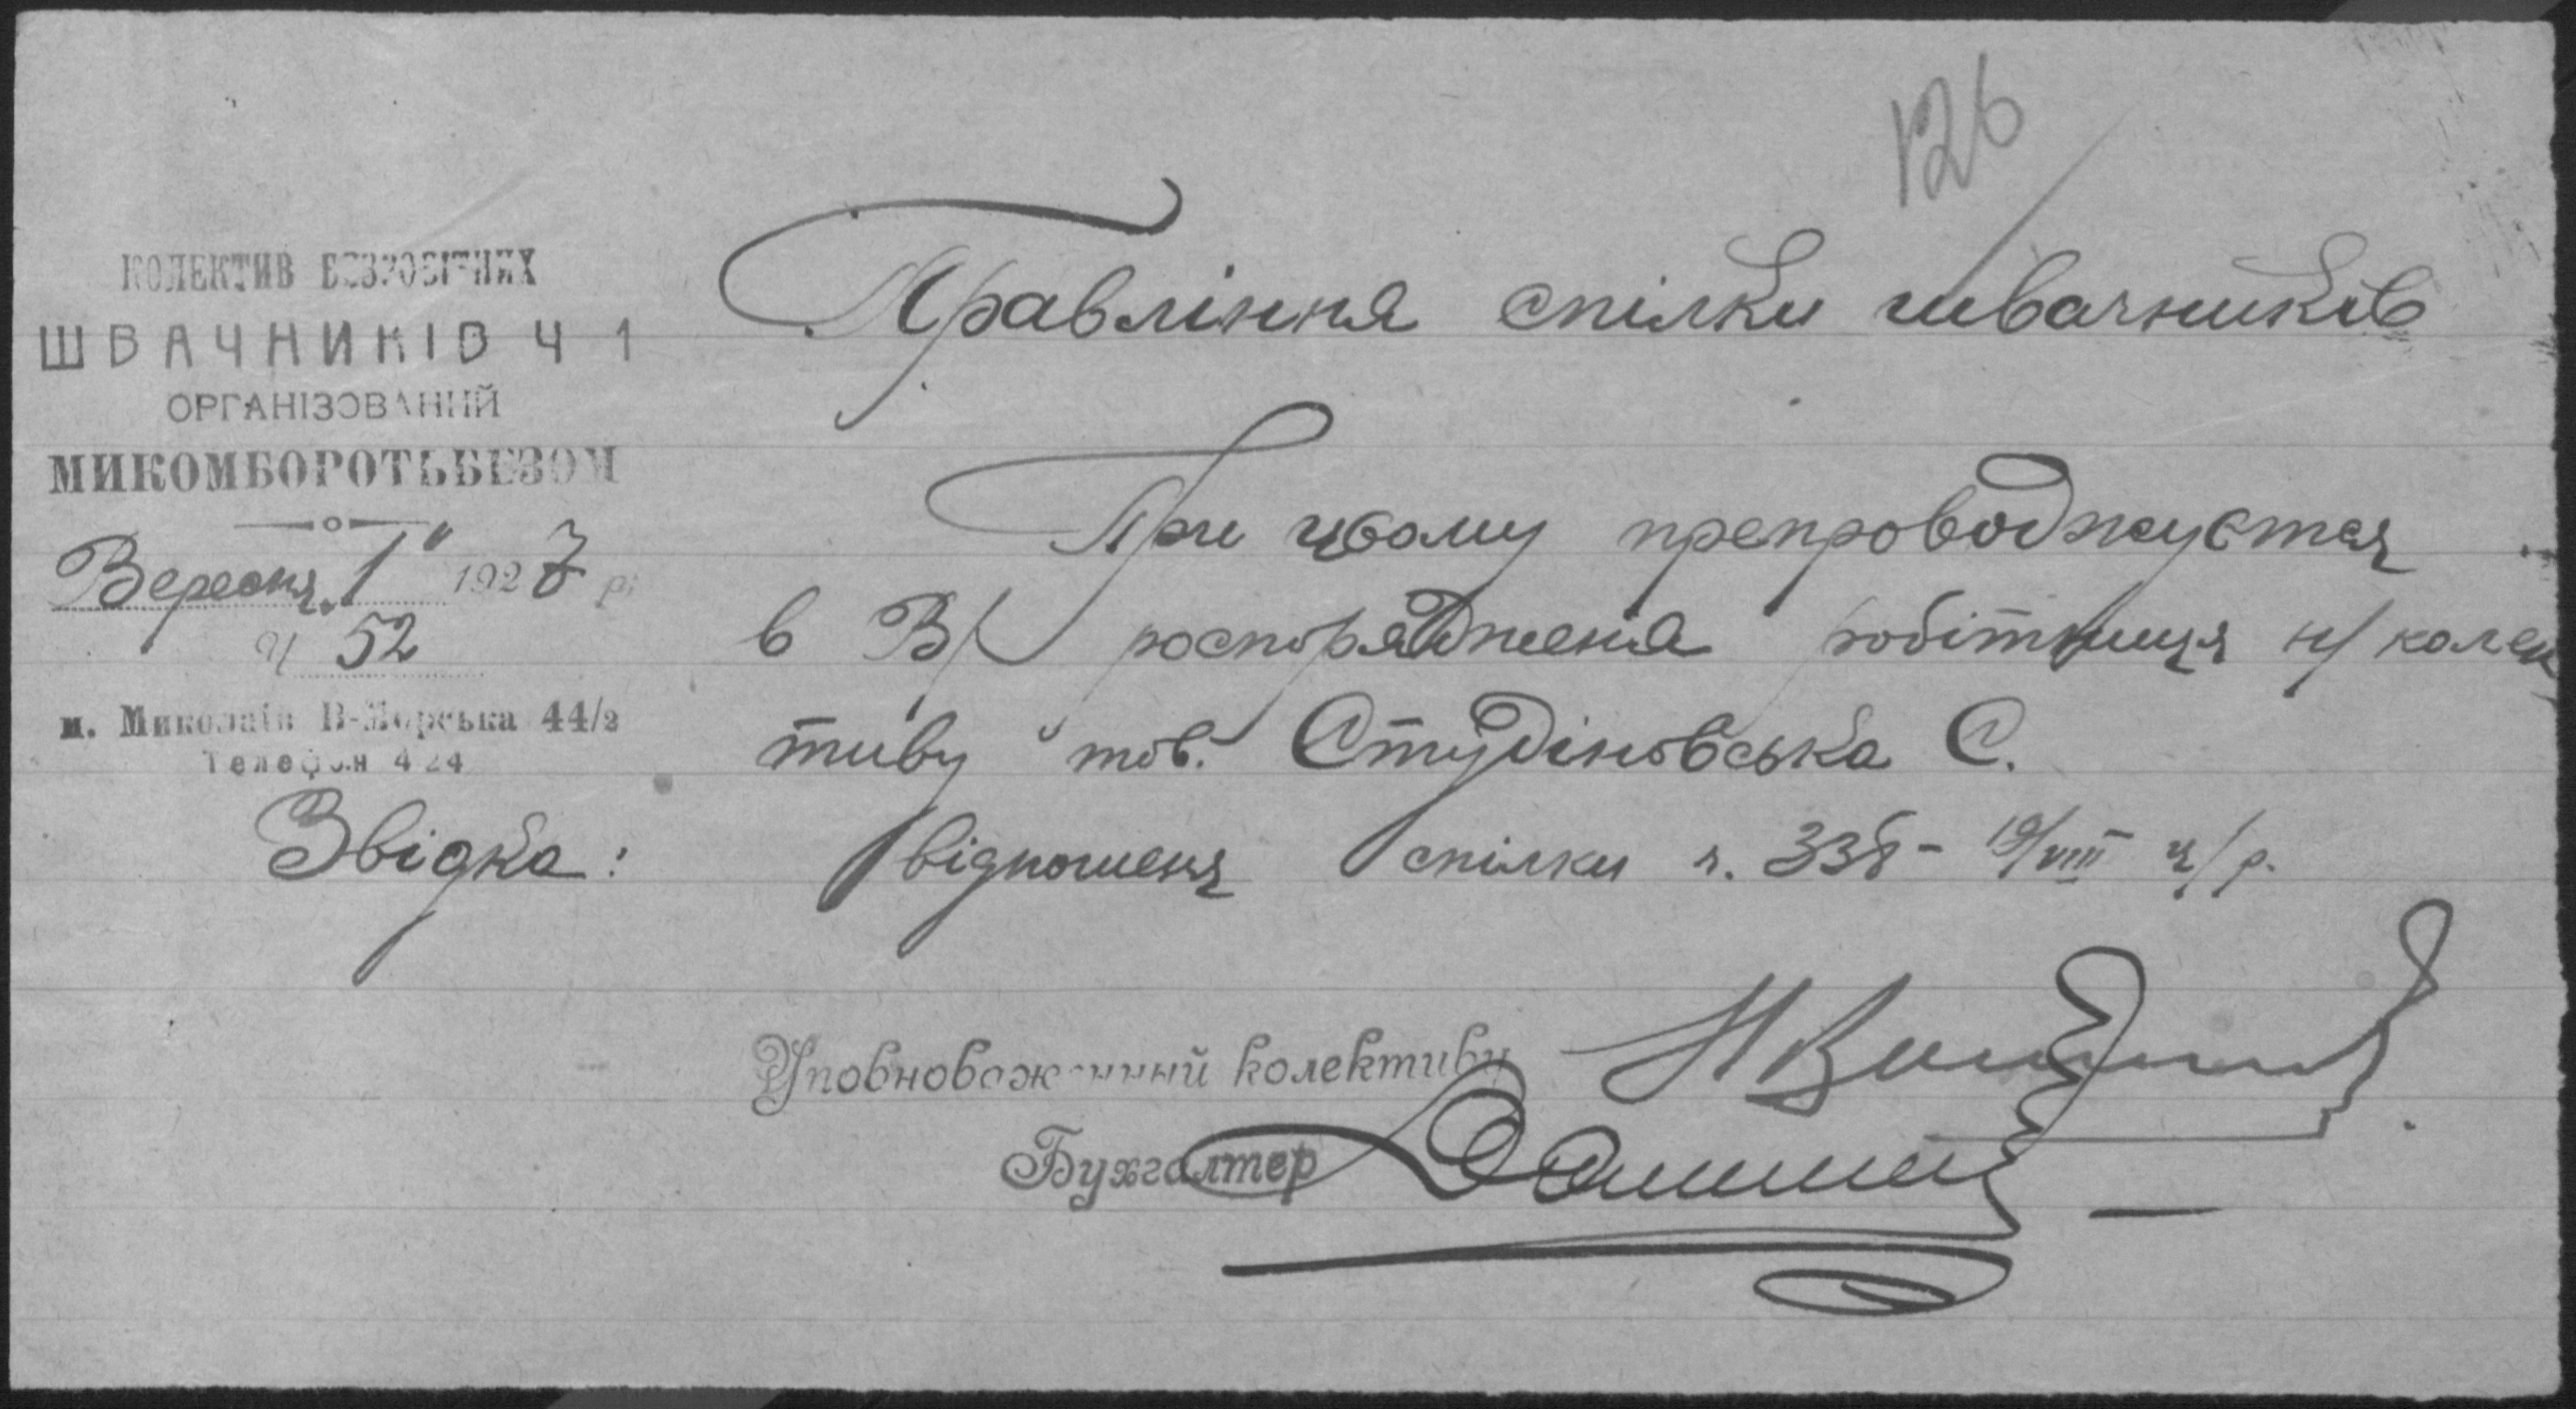 126
КОЛЕКТИВ БЕЗРОБІТНИХ
ШВАЧНИКІВ Ч 1
ОРГАНІЗОВАНИЙ
МИКОМБОРОТЬБЕЗОМ
Вересня „1" 1927 р.
Ч 52
м. Миколаїв В-Морська 44/2
Телефон 424
Правління спілки швачників
При цьому препроводжуєтся
в В/ роспорядженя робітниця н/ колек
тиву тов. Студіновська С.
Звідка: відношеня спілки ч. 338 - 19/VIII ц/р.
Уповноважений колективу
Бухгалтер